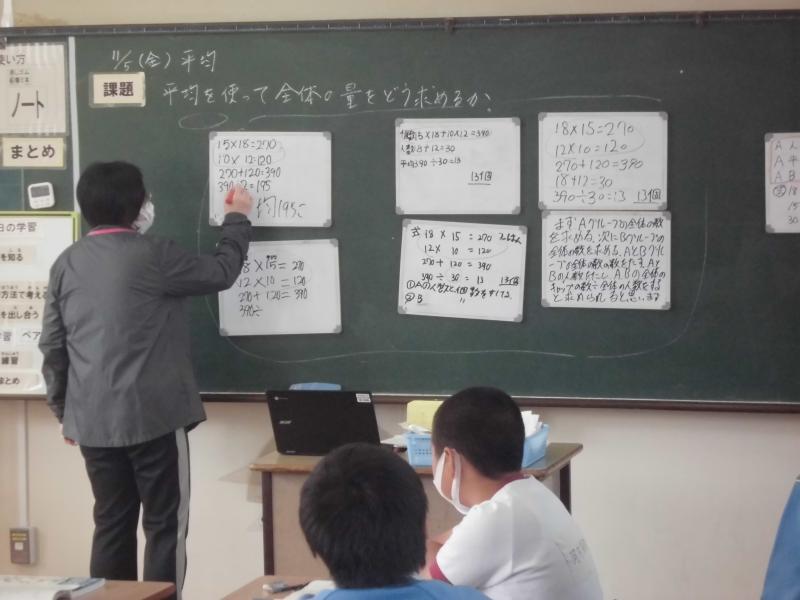 使い方
ノート
まとめ
11/5(金)平均
課題
平均を使って全体の量をどう求めるか。
15×18=270
10×12=120
270+120=390
390÷2=195
均195こ
個数15×18+10×12=390
人数18+12=30
平均390÷30=13
13個
18×15=270
12×10=120
270+120=390
18+12=30
390÷30=13 13個
18×15=270
12×10=120
270+120=390
390÷
式 18×15=270
12×10=120
270+120=390
390÷30=13 13個
①Aの人数と個数をかける
②B 〃
まずAグループの全体の数
を求める。次にBグループの
全体の数を求める。AとBグル
ープの全体の数の数をたす。Aと
Bの人数をたし、ABの全体の
キャップの数÷全体の人数をする
と求められると思います
日の学習
を知る
方法で考える
を出し合う
学習 ペア
練習
まとめ
acer